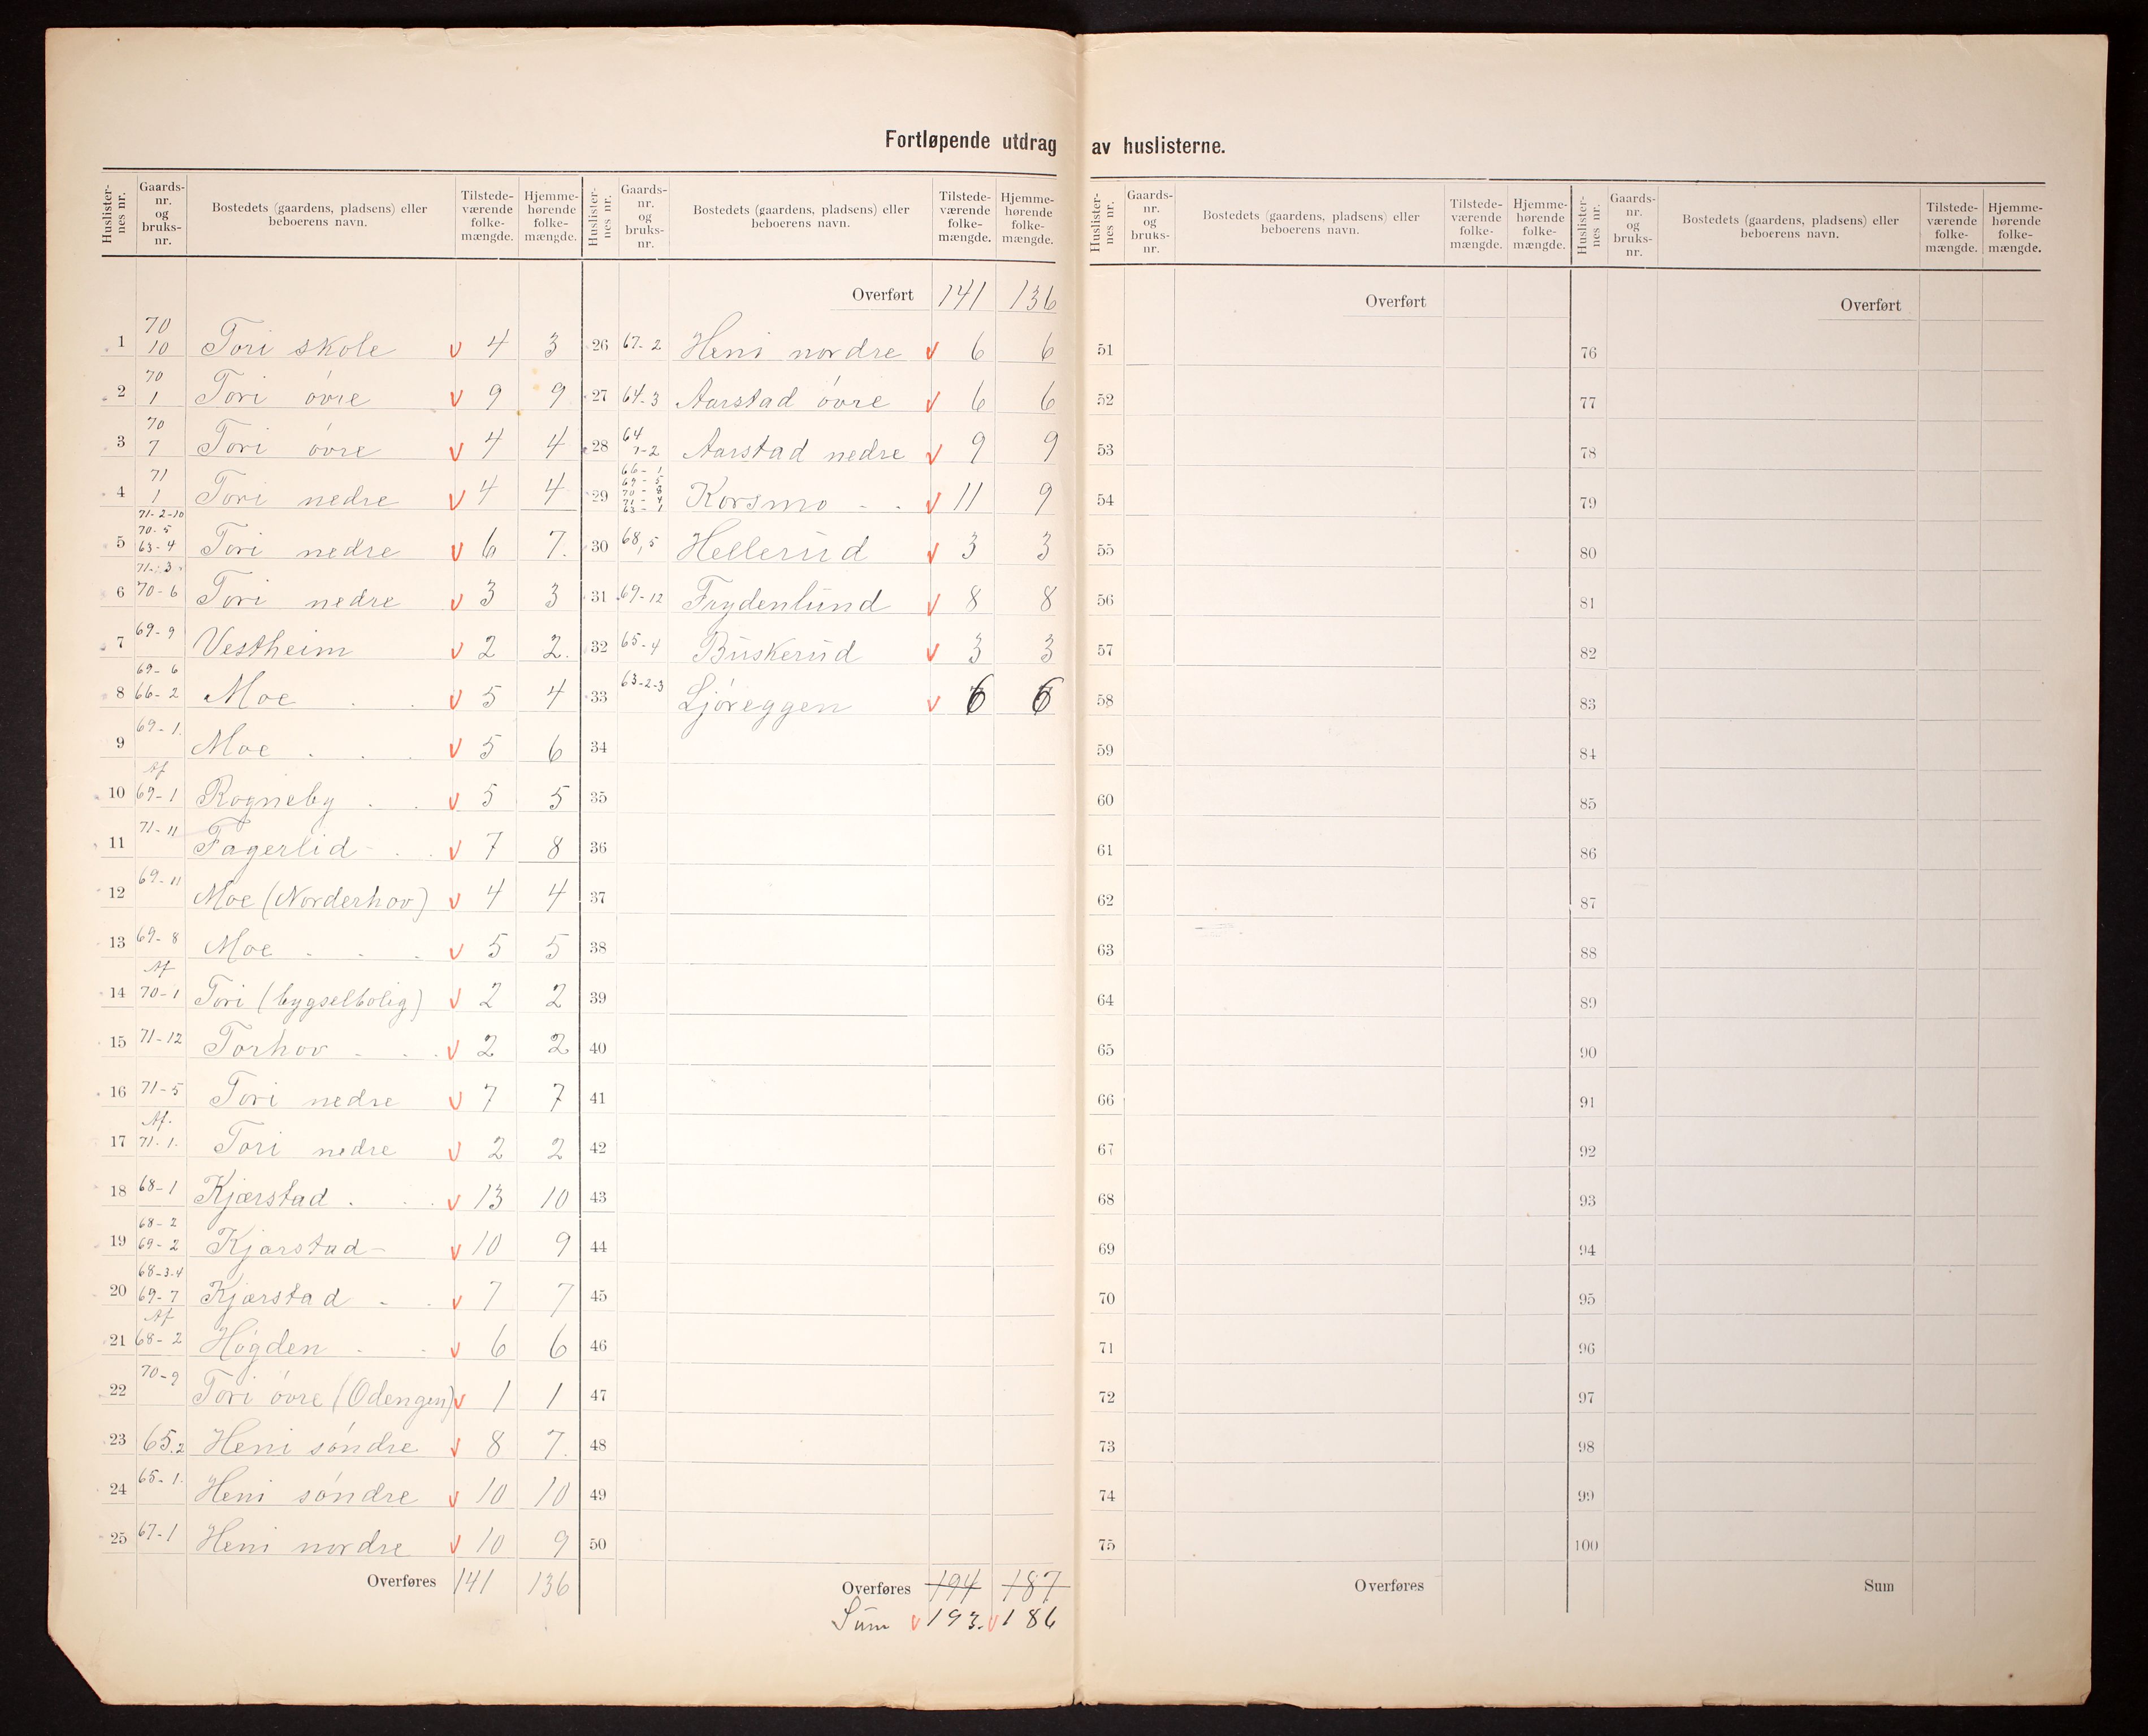 Fortløpende utdrag av huslisterne.
Huslisternes nr. Gaards-nr. og bruks-nr. Bostedets (gaardens, pladsens) eller beboerens navn. Tilstedeværende folkemængde. Hjemmehørende folkemængde.
1 70 10 Tori skole v 4 3
2 70 1 Tori övre v 9 9
3 70 7 Tori övre v 4 4
4 71 1 Tori nedre v 4 4
5 71-2-10 70-5 63-4 Tori nedre v 6 7.
6 71-3 70-6 Tori nedre v 3 3
7 69-9 Vestheim v 2 2.
8 69-6 66-2 Moe v 5 4
9 69-1. Moe v 5 6
10 Af 69-1 Rogneby v 5 5
11 71-11 Fagerlid v 7 8
12 69-11 Moe (Norderhov) v 4 4
13 69-8 Moe v 5 5
14 Af 70-1 Tori (bygselbolig) v 2 2
15 71-12 Torhov v 2 2
16 71-5 Tori nedre v 7 7
17 Af. 71-1. Tori nedre v 2 2
18 68-1 Kjærstad v 13 10
19 68-2 69-2 Kjærstad v 10 9
20 68-3-4 69-7 Kjærstad v 7 7
21 Af 68-2 Högden v 6 6
22 70-9 Tori övre (Odengen) v 1 1
23 65.2 Heni söndre v 8 7.
24 65-1. Heni söndre v 10 10
25 67-1 Heni nordre v 10 9
Overføres 141 136
Huslisternes nr. Gaards-nr. og bruks-nr. Bostedets (gaardens, pladsens) eller beboerens navn. Tilstedeværende folkemængde. Hjemmehørende folkemængde.
Overført 141 136
26 67-2 Heni nordre v 6 6
27 64-3 Aarstad övre v 6 6
28 64 1-2 Aarstad nedre v 9 9
29 66-1 69-5 70-8 71-4 63-1 Korsmo v 11 9
30 68,5 Hellerud v 3 3
31 69-12 Frydenlund v 8 8
32 65-4 Buskerud v 3 3
33 63-2-3 Ljöreggen v 6 6
34
35
36
37
38
39
40
41
42
43
44
45
46
47
48
49
50
Overføres 194 187
Sum v 193. v 186
Huslisternes nr. Gaards-nr. og bruks-nr. Bostedets (gaardens, pladsens) eller beboerens navn. Tilstedeværende folkemængde. Hjemmehørende folkemængde.
Overført
51
52
53
54
55
56
57
58
59
60
61
62
63
64
65
66
67
68
69
70
71
72
73
74
75
Overføres
Huslisternes nr. Gaards-nr. og bruks-nr. Bostedets (gaardens, pladsens) eller beboerens navn. Tilstedeværende folkemængde. Hjemmehørende folkemængde.
Overført
76
77
78
79
80
81
82
83
84
85
86
87
88
89
90
91
92
93
94
95
96
97
98
99
100
Sum